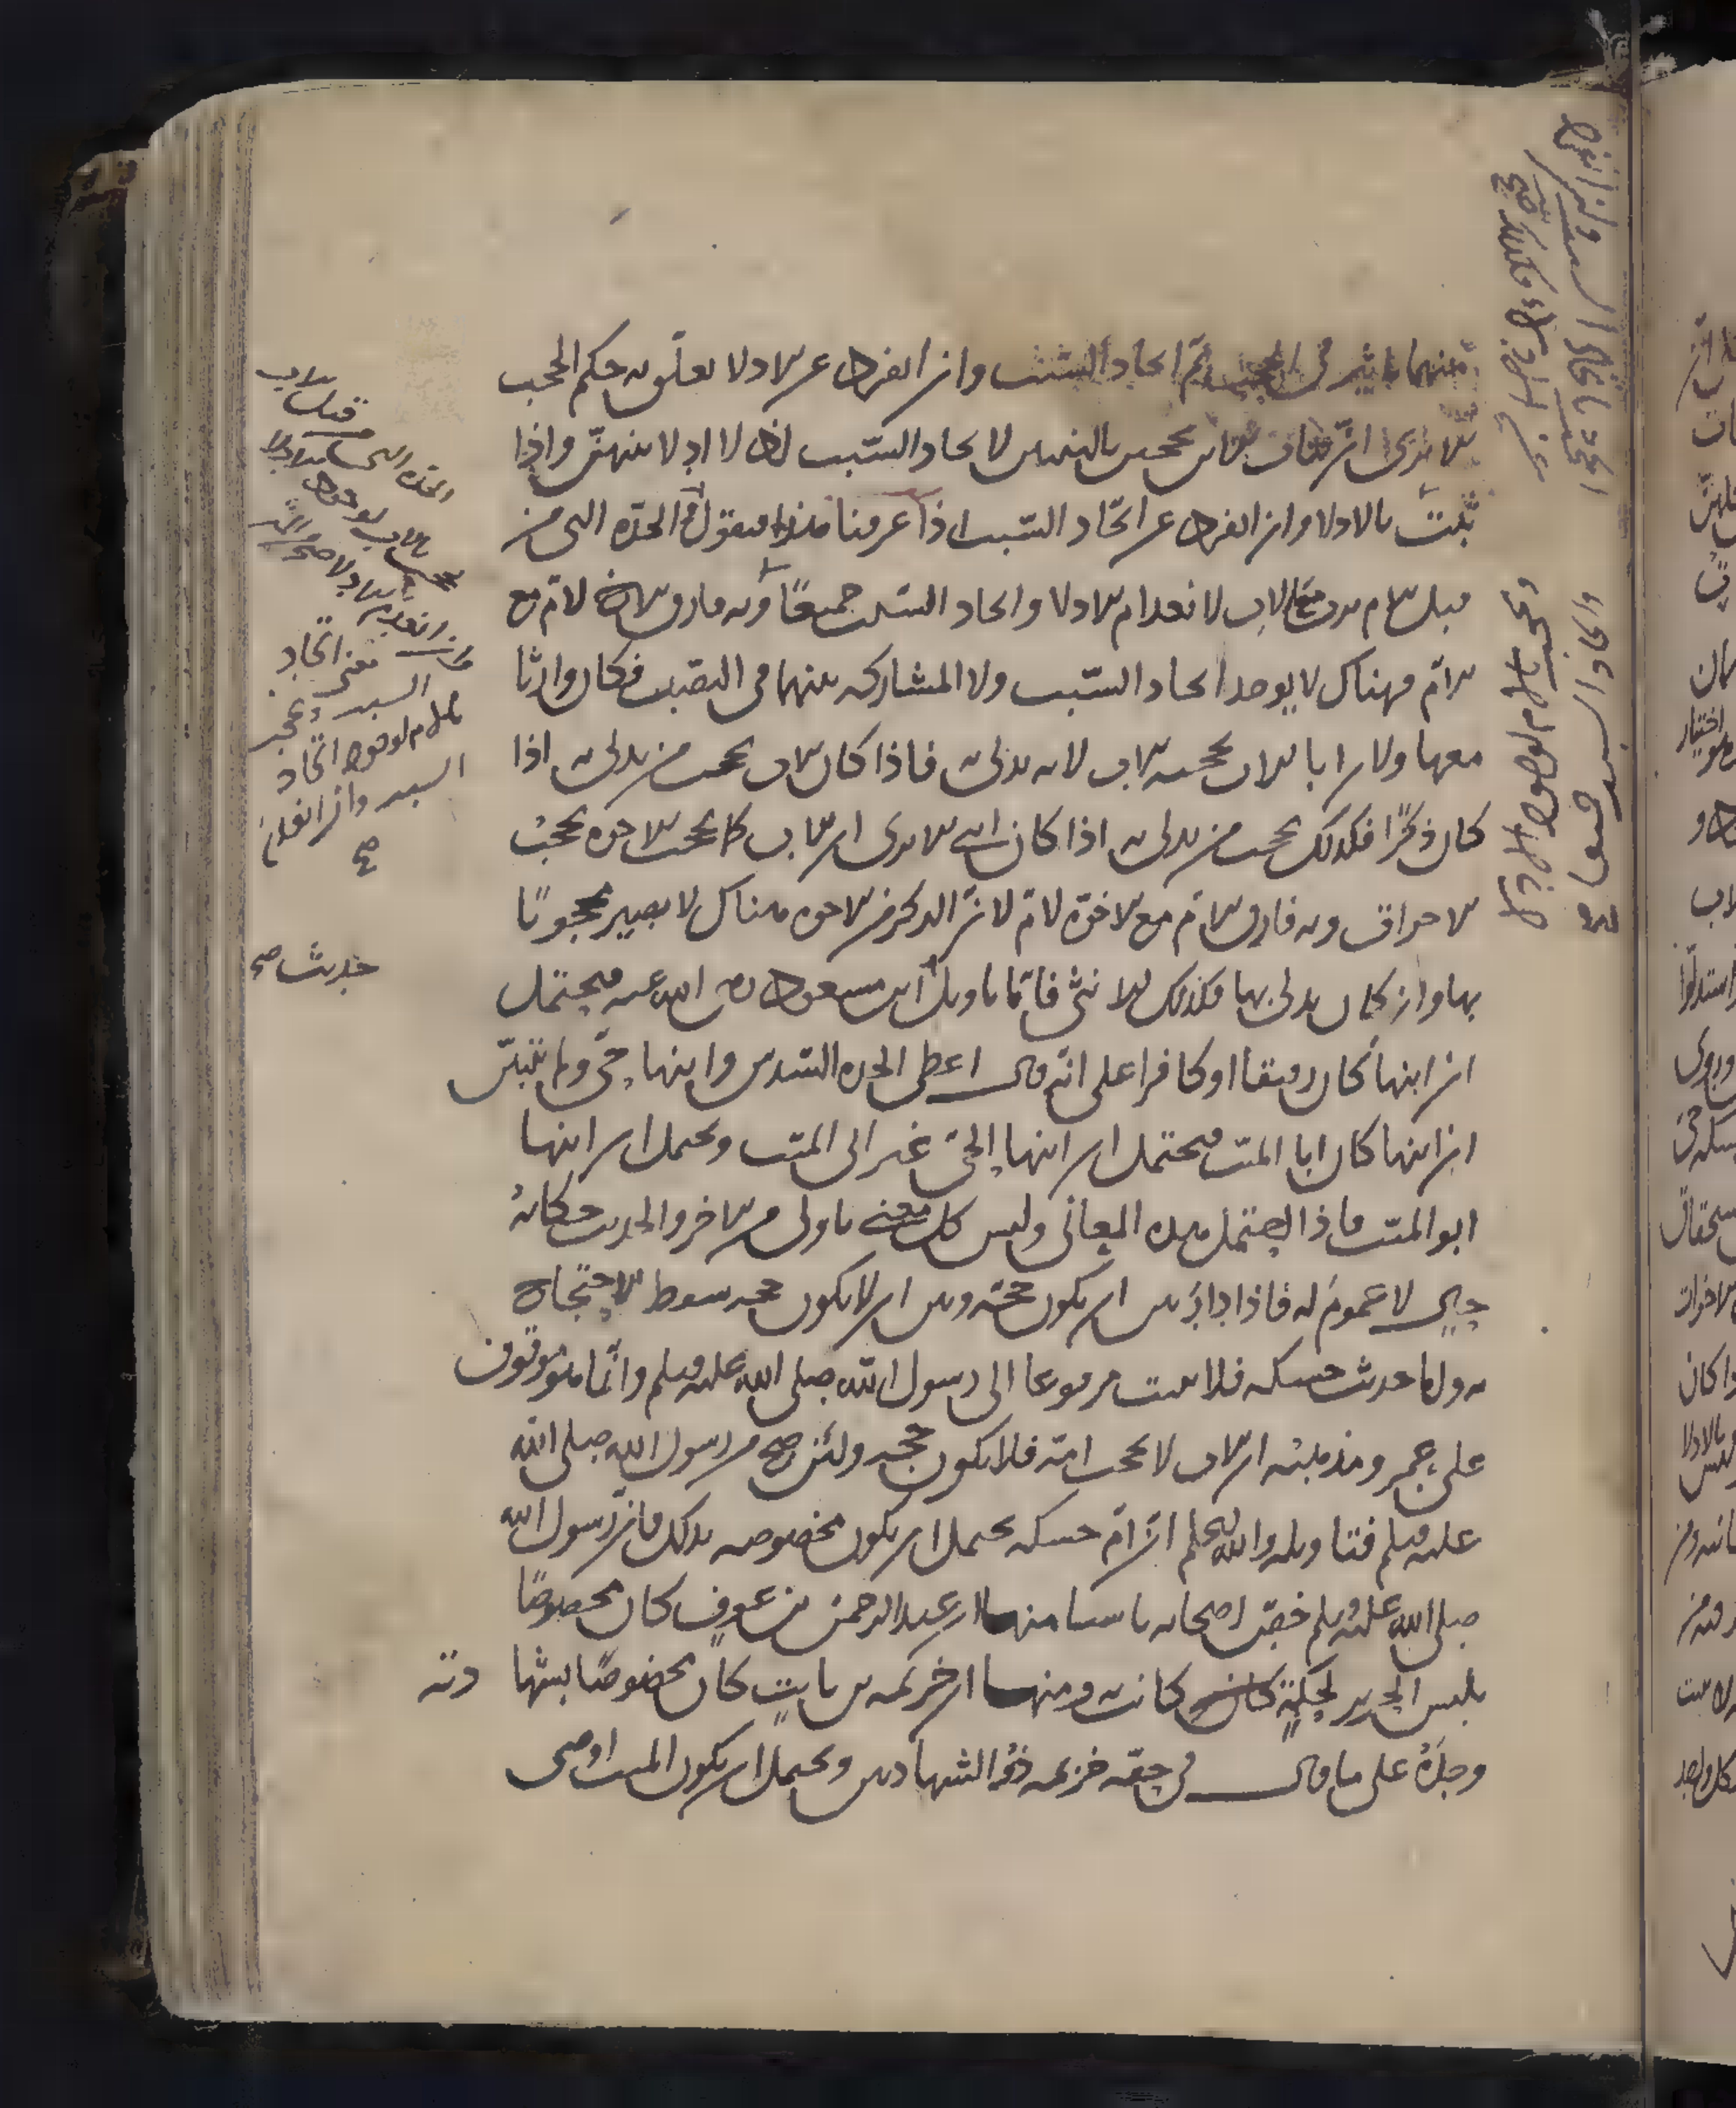 منهما تاثير في الحجب ثم اتحاد السبب وان انفرد عن الادلاء تعلق به حكم الحجب
الا ترى ان بنات الابن يحجبن بالبنتين لاتحاد السبب اذ لا ادلاء بينهن واذا
ثبت بالادلاء وان انفرد عن اتحاد السبب اذا عرفنا هذا فنقول الجدة التي من
قبل الام ترث مع الاب لانعدام الادلاء واتحاد السبب جميعا وبه فارق الاخ لام مع
الام فهناك لا يوجد اتحاد السبب ولا المشاركة بينهما في النصيب فكان وارثا
معها ولا اب الاب يحجبه الاب لانه يدلي به فاذا كان الاب يحجب من يدلي به اذا
كان ذكرا فكذلك يحجب من يدلي به اذا كان انثى الا ترى ان الاب كما يحجب الاخوة يحجب
الاخوات وبه فارق الام مع الاخوة لام لان الذكر من الاخوة هناك لا يصير محجوبا
بها وان كان يدلي بها فكذلك الانثى فاما تاويل ابن مسعود رضي الله عنه فيحتمل
ان ابنها كان رقيقا او كافرا على انه قال اعطى الجدة السدس وابنها حي ولم يتبين
ان ابنها كان ابا الميت فيحتمل ان ابنها الحي غير اب الميت ويحتمل ان ابنها
ابو الميت فاذا احتمل هذه المعاني وليس كل معنى باولى من الاخر والحديث حكاية
حال لا عموم له فاذا دار بين ان يكون حجة وبين ان لا يكون حجة سقط الاحتجاج
به واما حديث حسكه فلا يثبت مرفوعا الى رسول الله صلى الله عليه وسلم وانما هو موقوف
على عمر ومذهبه ان الاب لا يحجب امه فلا يكون حجة ولئن صح من رسول الله صلى الله
عليه وسلم فتاويله والله اعلم ان ام حسكه يحتمل ان يكون مخصوصة بذلك فان رسول الله
صلى الله عليه وسلم خص اصحابه باشيا منها ان عبد الرحمن بن عوف كان مخصوصا
بلبس الحرير لحكة كانت به ومنها ان خزيمة بن ثابت كان مخصوصا بشهادته
وحده على ما قال في حقه خزيمة ذو الشهادتين ويحتمل ان يكون الميت اوصى
الجدة التي من قبل الاب
تحجب بالاب لوجود الادلاء
وان انعدم
معنى اتحاد
السبب وتحجب
بالام لوجود اتحاد
السبب وان انعدم
صح
حديث صح
وتحجب بالام لوجود الادلاء
واتحاد السبب جميعا صح